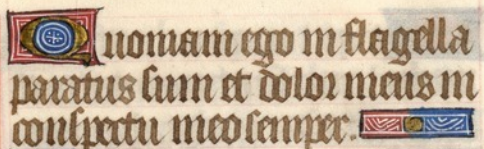 Quoniam ego in flagella
paratus sum et dolor meus in
conspectu meo semper.